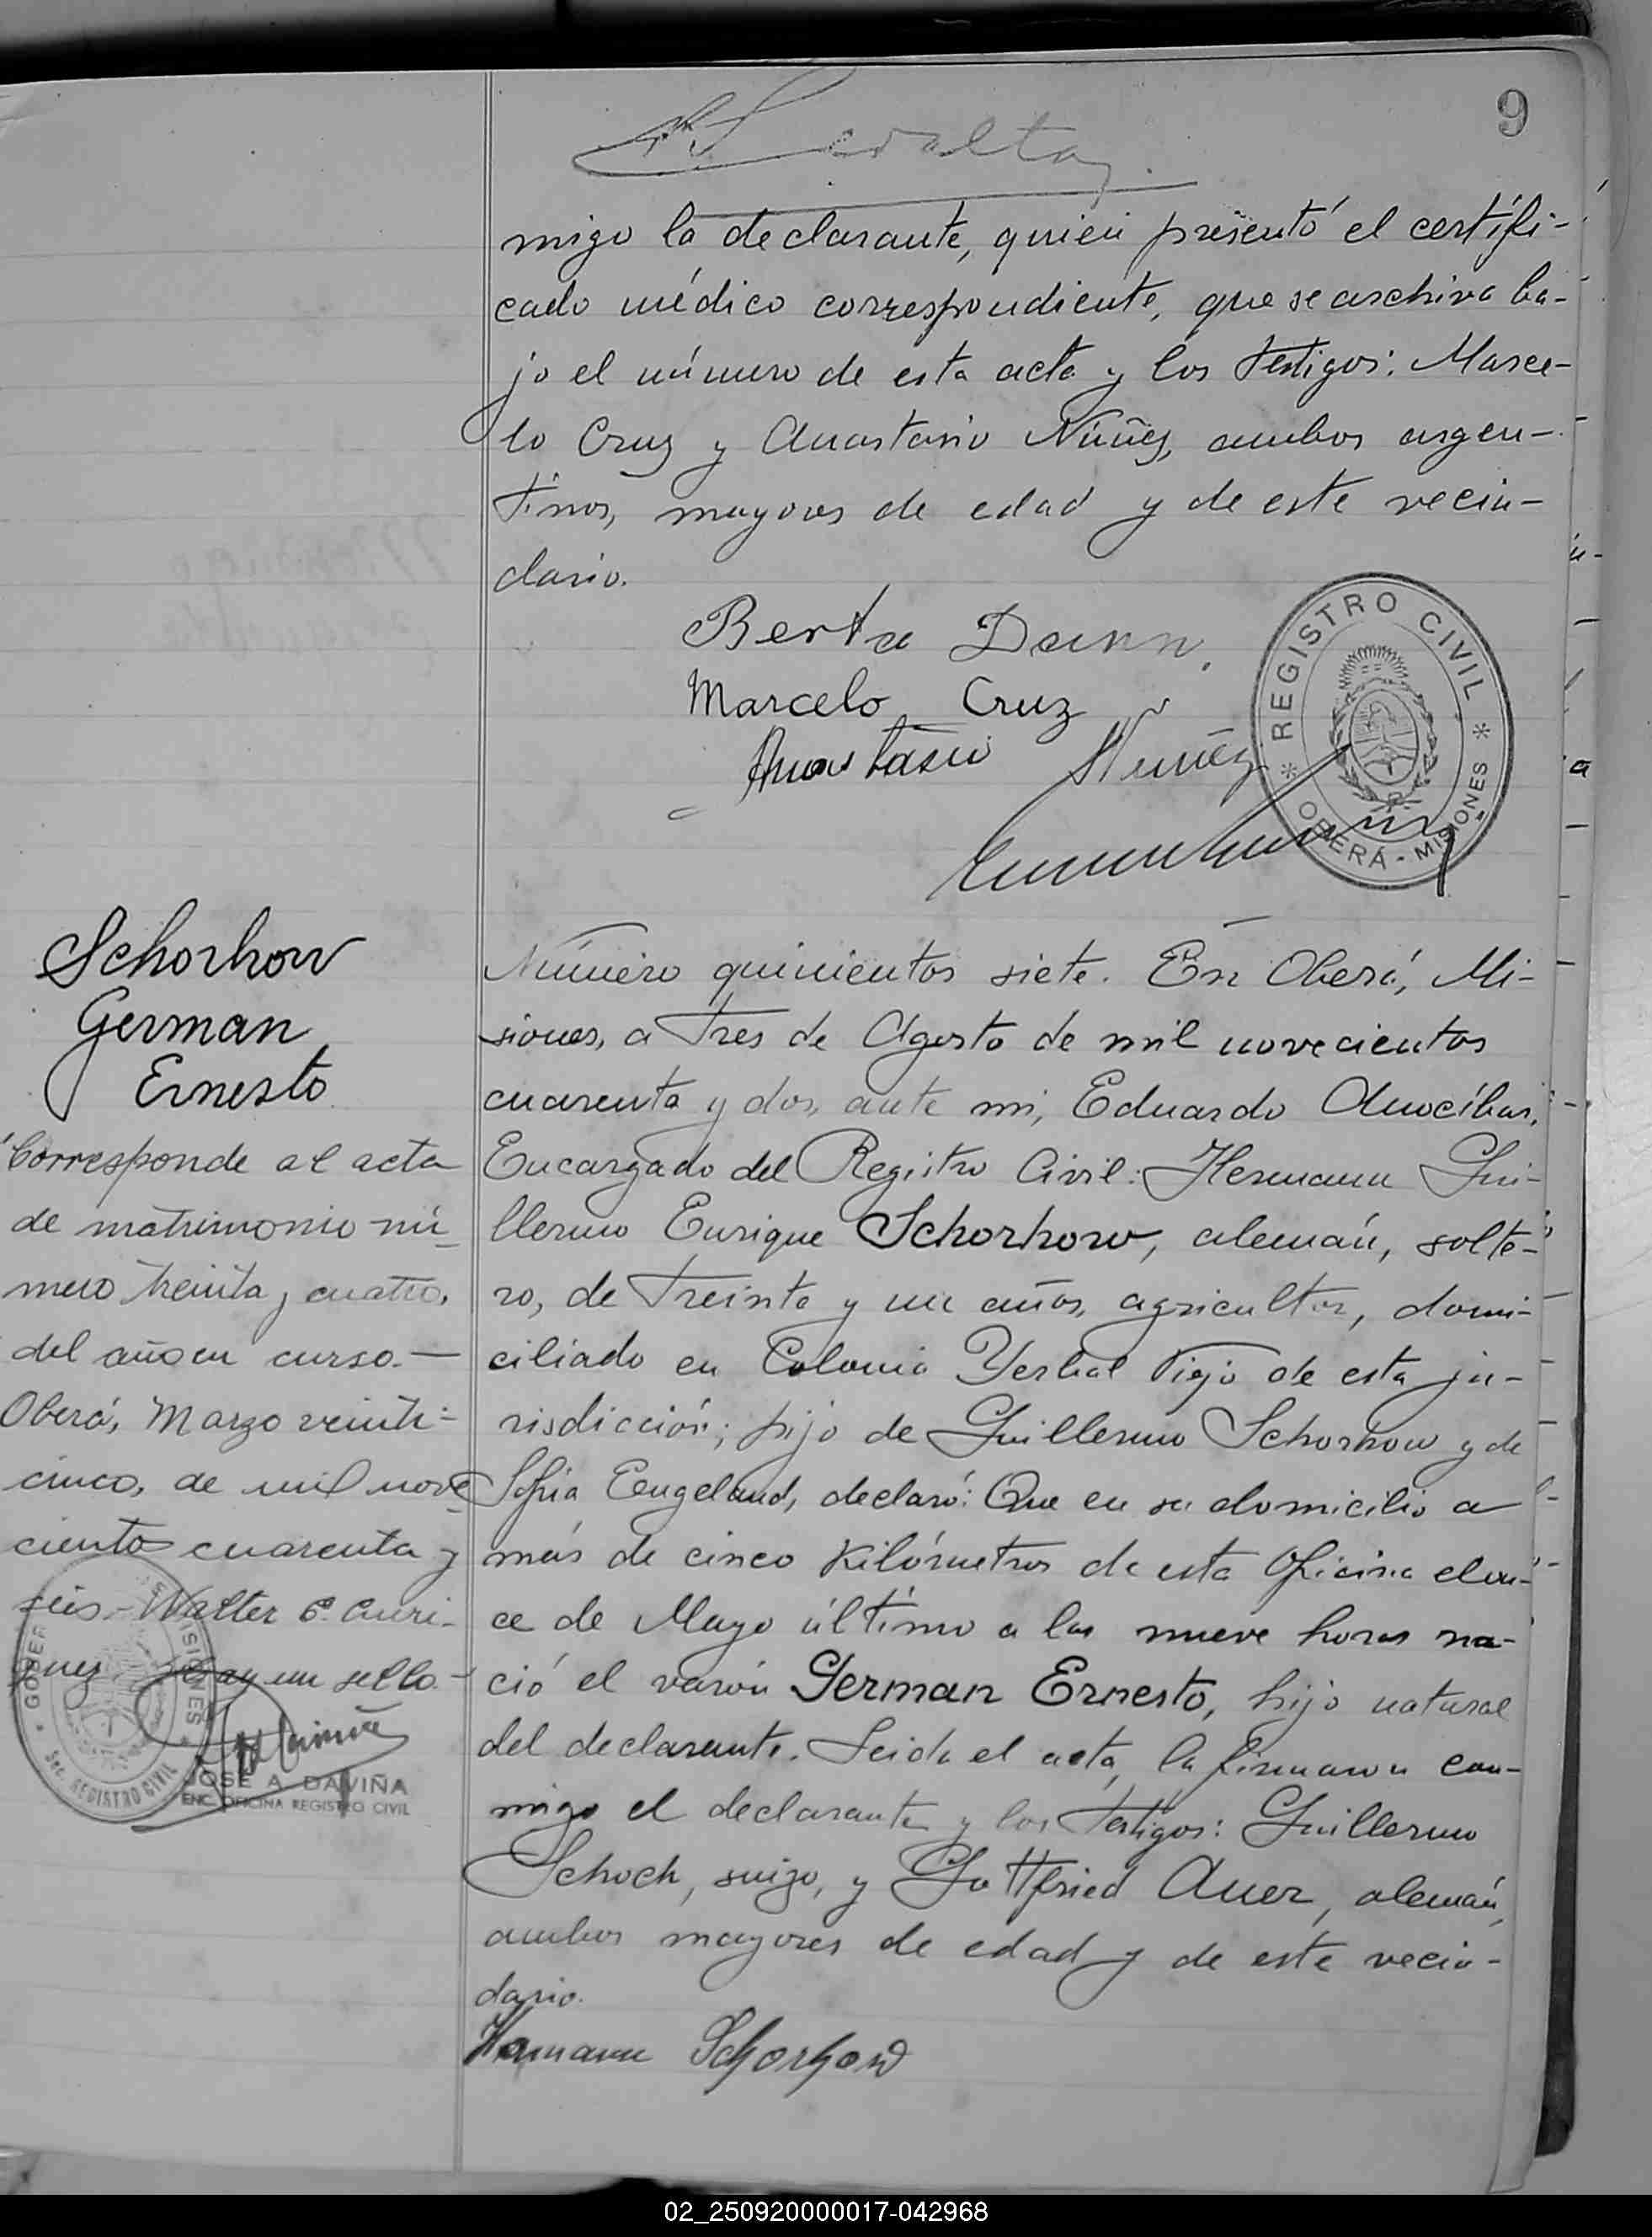 9
migo la declarante, quien presentó el certifi-
cado médico correspondiente, que se archiva ba-
jo el número de esta acta y los testigos: Marce-
lo Cruz y Anastasio Núñez, ambos argen-
tinos, mayores de edad y de este vecin-
dario.
Berta Dann.
Marcelo Cruz
Anastasio Nuñez
* REGISTRO CIVIL *
OBERÁ - MISIONES
Schorhow
German
Ernesto
Corresponde al acta
de matrimonio nú-
mero treinta y cuatro,
del año en curso.—
Oberá, Marzo veinti-
cinco, de mil nove-
ciento cuarenta y
seis.- Walter E. Curi-
quez Hay un sello.-
JOSE A. DAVIÑA
ENC. OFICINA REGISTRO CIVIL
Sec. REGISTRO CIVIL
Número quinientos siete. En Oberá, Mi-
siones, a tres de Agosto de mil novecientos
cuarenta y dos, ante mi, Eduardo Amocíbar,
Encargado del Registro Civil: Hermann Gui-
llermo Enrique Schorhow, alemán, solte-
ro, de treinta y un años, agricultor, domi-
ciliado en Colonia Yerbal Viejo de esta ju-
risdicción; hijo de Guillermo Schorhow y de
Sofia Eengeland, declaró: Que en su domicilio a
más de cinco kilómetros de esta Oficina el on-
ce de Mayo último a las nueve horas na-
ció el varón German Ernesto, hijo natural
del declarante. Leida el acta, la firmaron con-
migo el declarante y los testigos: Guillermo
Schoch, suizo, y Gottfried Auer, alemán,
ambos mayores de edad y de este vecin-
dario.
Hermann Schorhow
02_250920000017-042968